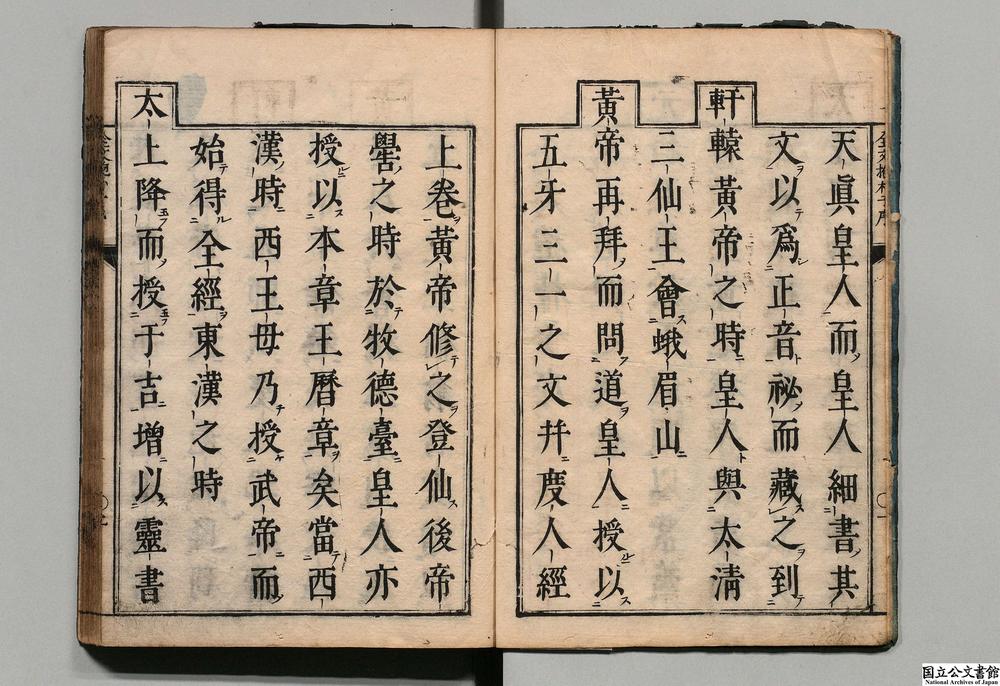 天眞皇人而皇人細書其
文以爲正音祕而藏之到
軒轅黃帝之時皇人與太淸
三仙王會蛾眉山
黃帝再拜而問道皇人授以
五牙三一之文幷度人經
上卷黃帝修之登仙後帝
嚳之時於牧德臺皇人亦
授以本章王曆章矣當西
漢時西王母乃授武帝而
始得全經東漢之時
太上降而授于吉增以靈書
国立公文書館
National Archives of Japan